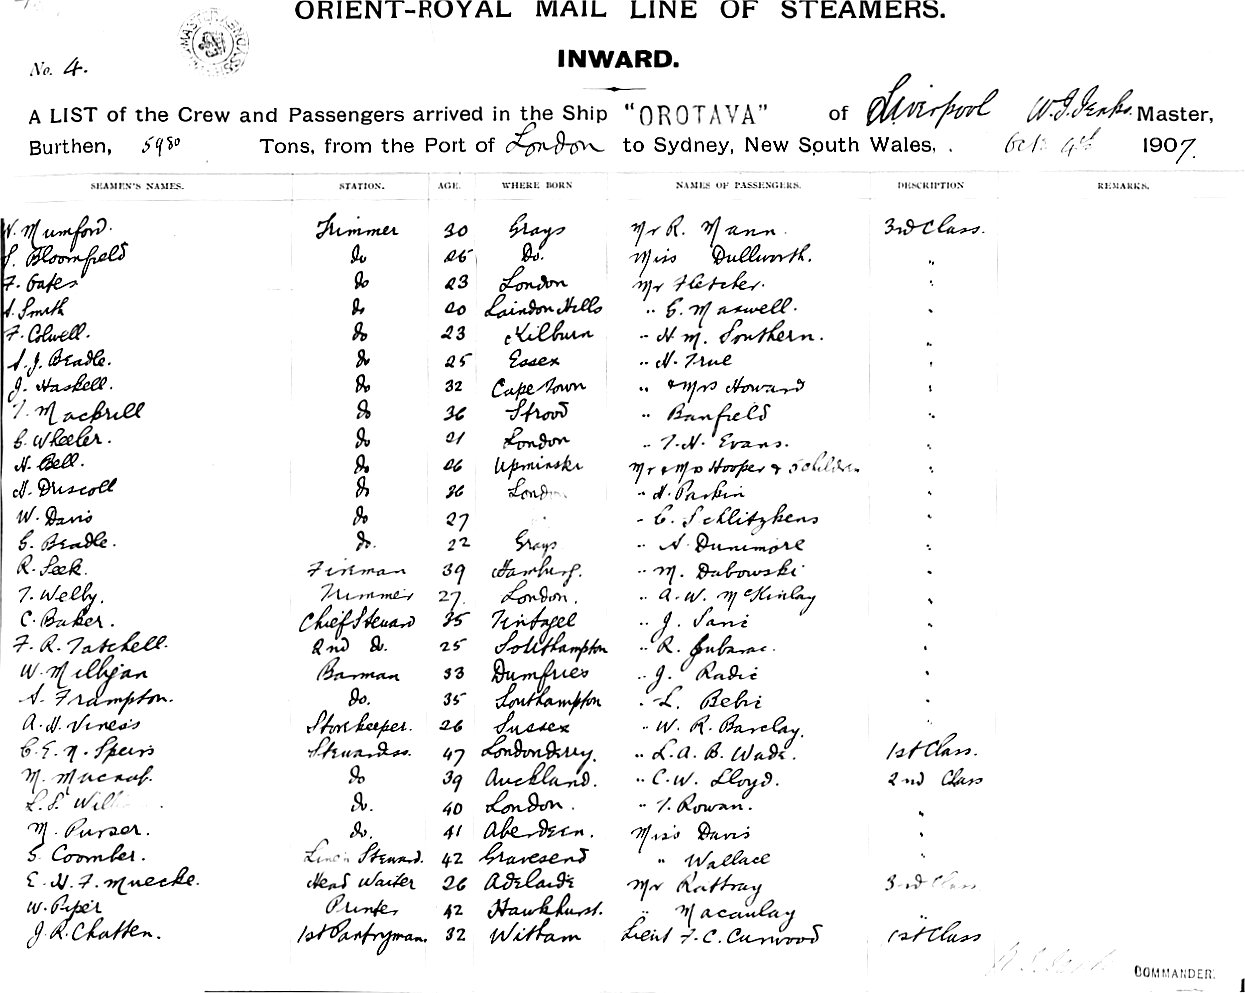 ORIENT-ROYAL MAIL LINE OF STEAMERS.
INWARD.
No. 4.
A LIST of the Crew and Passengers arrived in the Ship "OROTAVA" of Liverpool W.J. Jenks. Master,
Burthen, 5980 Tons, from the Port of London to Sydney, New South Wales, Oct. 4th 1907.
SEAMEN'S NAMES. STATION. AGE. WHERE BORN NAMES OF PASSENGERS. DESCRIPTION REMARKS.
W. Mumford. Trimmer 30 Grays Mr R. Mann. 3rd Class.
S. Bloomfield do 26 Do. Miss Dullworth. "
F. Gates do 23 London Mr Fletcher. "
S. Smith do 20 Laindon Hills " G. Maxwell. "
F. Colwell. do 23 Kilburn " H. M. Southern. "
A. J. Beadle. do 25 Essex " H. True "
J. Haskell. do 32 Cape Town " & Mrs Howard "
T. Mackrill do 36 Strood " Banfield "
G. Wheeler. do 21 London " T. H. Evans. "
H. Bell. do 26 Upminster Mr & Mrs Hooper & 5 children "
H. Driscoll do 36 London " H. Parkin "
W. Davis do 27 " - C. Schlitzkens "
G. Beadle. do. 22 Grays " A. Dunimore "
R. Seek. Fireman 39 Hamburg. " M. Dabowski "
T. Welby. Trimmer 27. London. " A. W. McKinlay "
C. Baker. Chief Steward 35 Tintagel " J. Sani "
F. R. Tatchell. 2nd do. 25 Southampton " R. "
W. Milligan Barman 33 Dumfries " J. Radic "
A. Frampton. do. 35 Southampton " L. Bebic "
A. H. Viness Storekeeper. 26 Sussex " W. R. Barclay. "
C. E. N. Speirs Stewardess. 47 Londonderry. " L. A. B. Wade. 1st Class.
M. do 39 Auckland. " C. W. Lloyd. 2nd Class
L. S. do. 40 London. " T. Rowan. "
M. Purser. do. 41 Aberdeen. Miss Davis "
S. Coomber. Linen Steward. 42 Gravesend " Wallace "
E. H. F. Muecke. Head Waiter 26 Adelaide Mr Rattray 3rd Class
W. Piper Printer 42 Hawkhurst. " Macaulay "
J. R. Chatten. 1st Pantryman. 32 Witham Lieut F. C. Curwood 1st Class
COMMANDER.